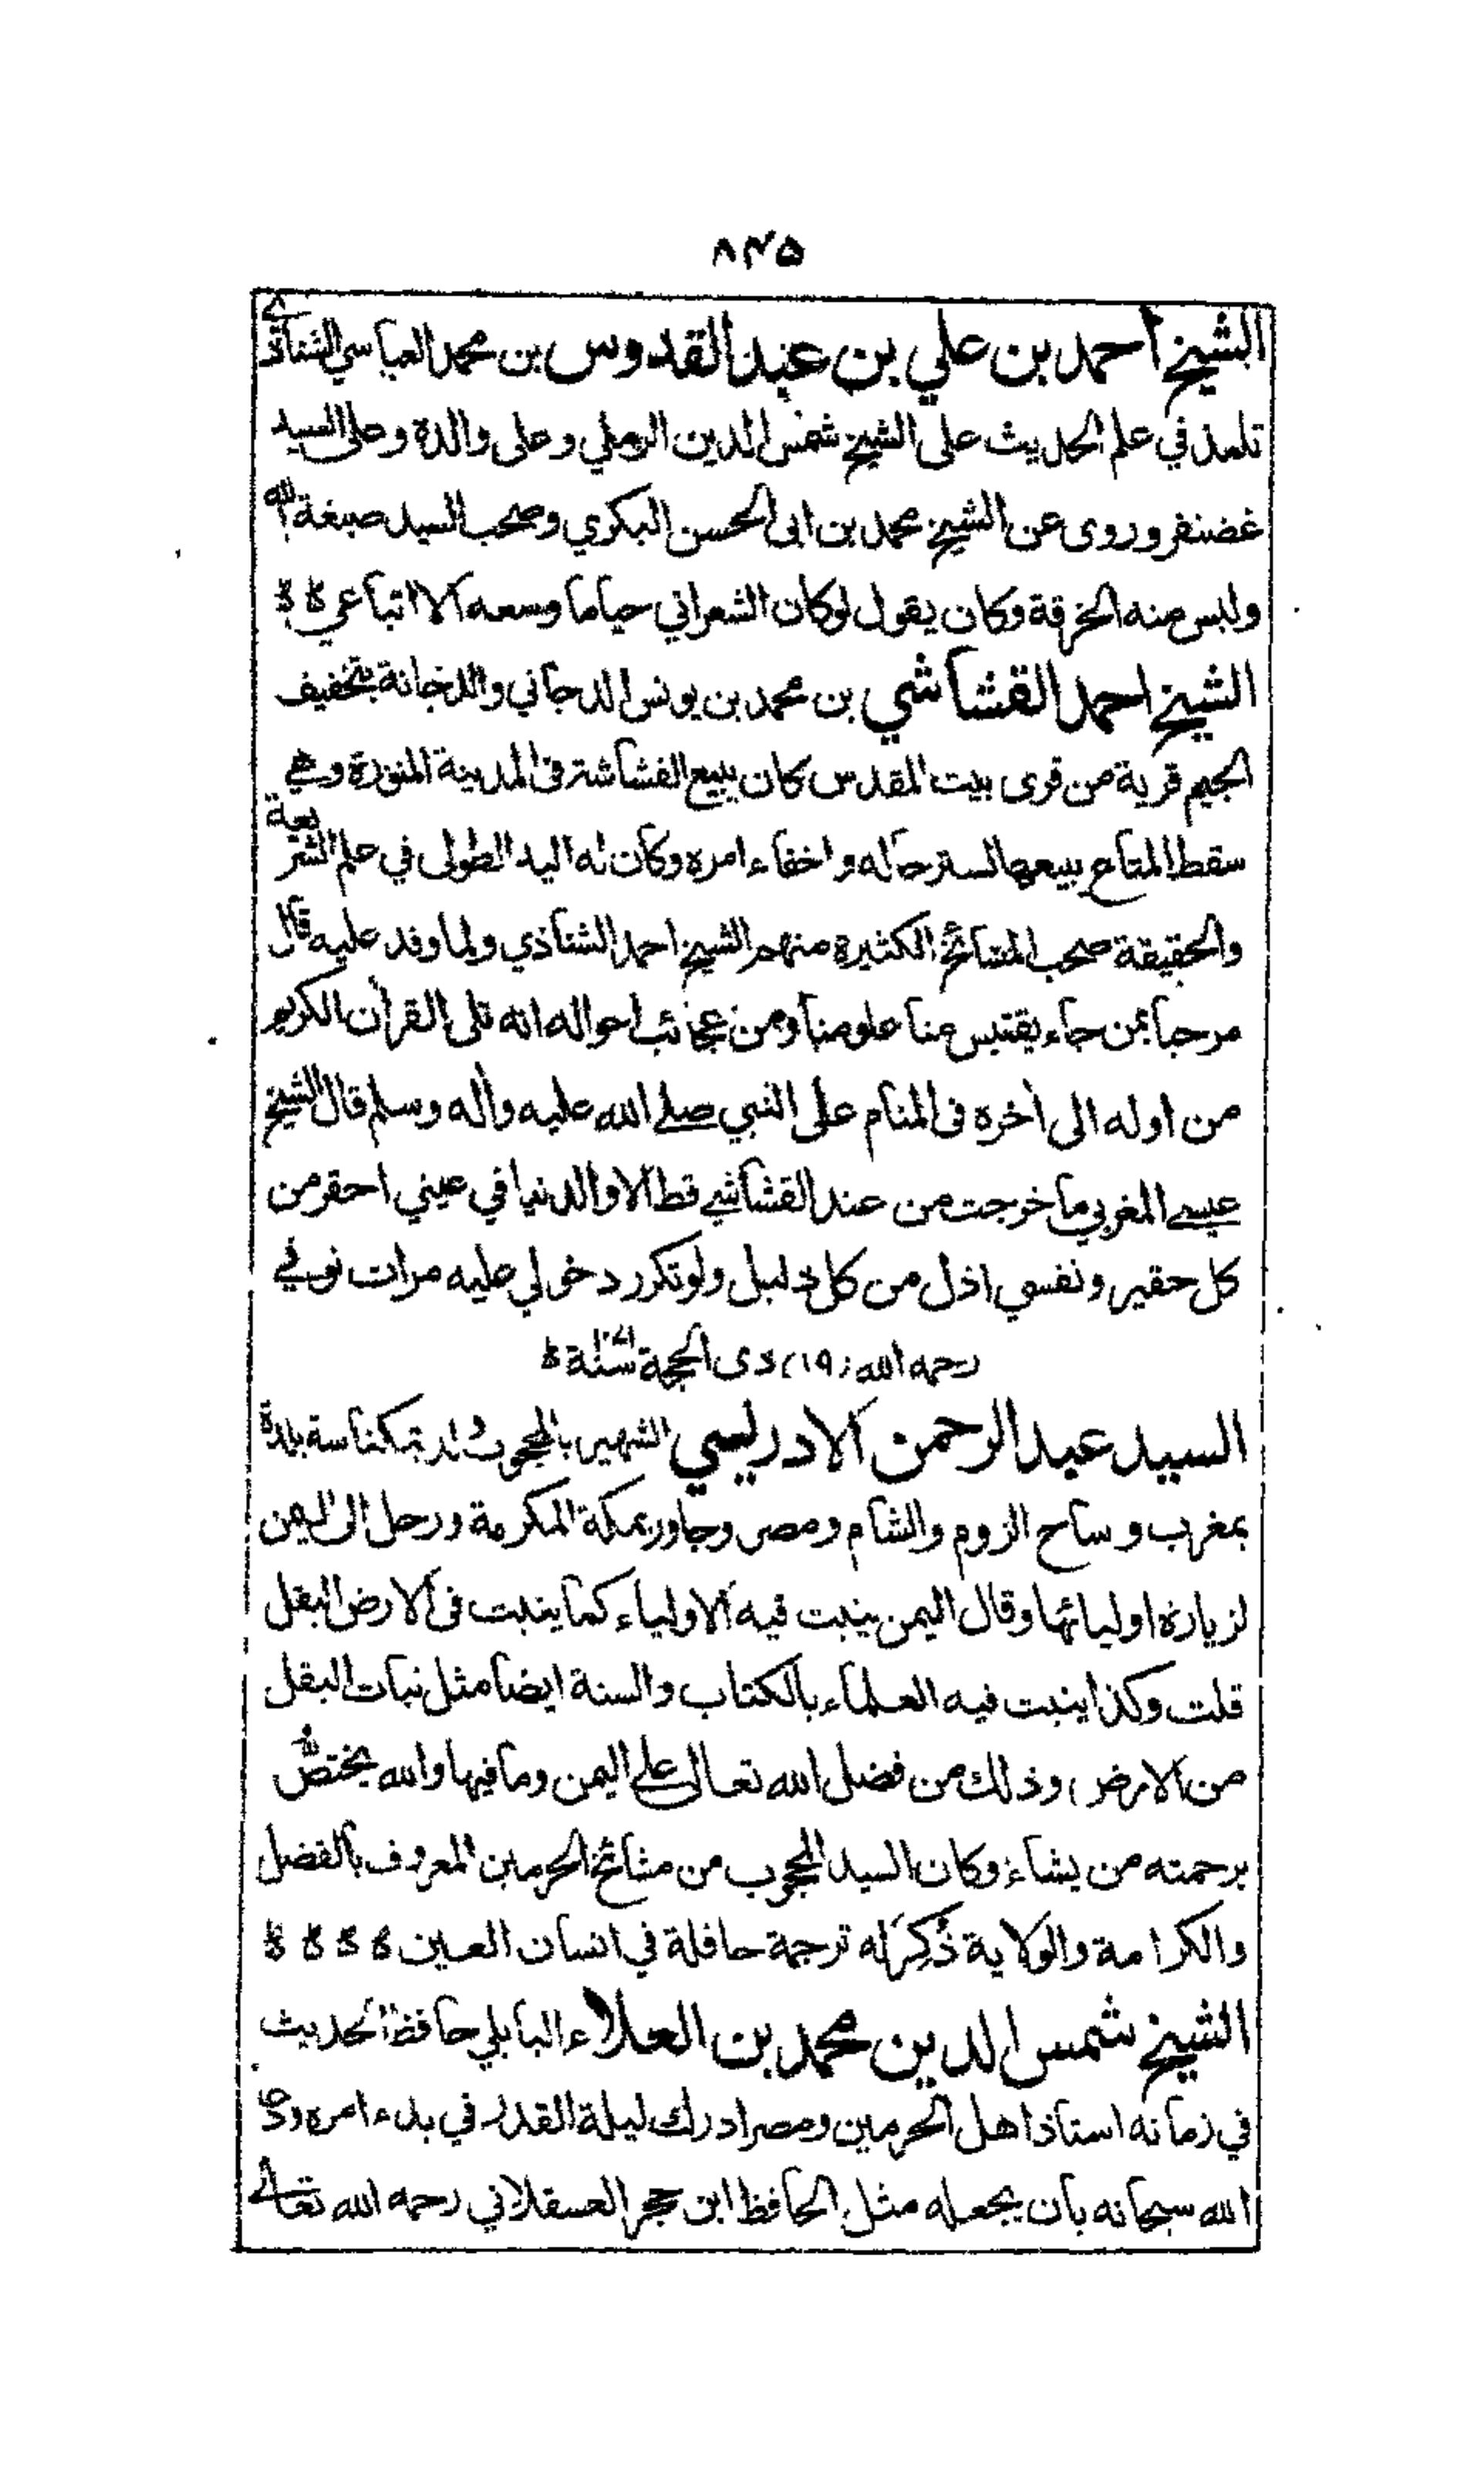 ٨٤٥
الشيخ أحمد بن علي بن عبد القدوس بن محمد العباسي الشناذي
تلمذ في علم الحديث على الشيخ شمس الدين الرملي وعلى والدة وعلى السيد
غضنفر وروى عن الشيخ محمد بن ابى الحسن البكري وصحب السيد صبغة الله
ولبس منه الخرقة وكان يقول لوكان الشعراني حيا ما وسعه الا اتباعي
الشيخ احمد القشاشي بن محمد بن يونس الدجاني والدجانة بتخفيف
الجيم قرية من قرى بيت المقدس كان يبيع القشاشة فى المدينة المنورة وهي
سقط المتاع يبيعها لستر حاله واخفاء امره وكان له اليد الطولى في علم الشريعة
والحقيقة صحب المشائخ الكثيرة منهم الشيخ احمد الشناذي ولما وفد عليه قال
مرحبا بمن جاء يقتبس منا علومنا ومن عجائب احواله انه تلى القرأن الكريم
من اوله الى أخره فى المنام على النبي صلى الله عليه وأله وسلم قال الشيخ
عيسى المغربي ما خرجت من عند القشاشي قط الا والدنيا في عيني احقر من
كل حقير ونفسي اذل من كل ذليل ولو تكرر دخولي عليه مرات توفي
رحمه الله (١٩) ذى الحجة سنة
السيد عبد الرحمن الادريسي الشهير بالمحجوب ولد بمكناسة بلدة
بمغرب وساح الروم والشام ومصر وجاور بمكة المكرمة ورحل الى اليمن
لزيارة اوليائها وقال اليمن ينبت فيه الاولياء كما ينبت فى الارض البقل
قلت وكذا ينبت فيه العلماء بالكتاب والسنة ايضا مثل نبات البقل
من الارض وذلك من فضل الله تعالى على اليمن وما فيها والله يختص
برحمته من يشاء وكان السيد المحجوب من مشائخ الحرمين المعروف بالفضل
والكرامة والولاية ذُكِرَ له ترجمة حافلة في انسان العين
الشيخ شمس الدين محمد بن العلاء البابلي حافظ الحديث
في زمانه استاذ اهل الحرمين ومصر ادرك ليلة القدر في بدء امره ودعا
الله سبحانه بان يجعله مثل الحافظ ابن حجر العسقلاني رحمه الله تعالى